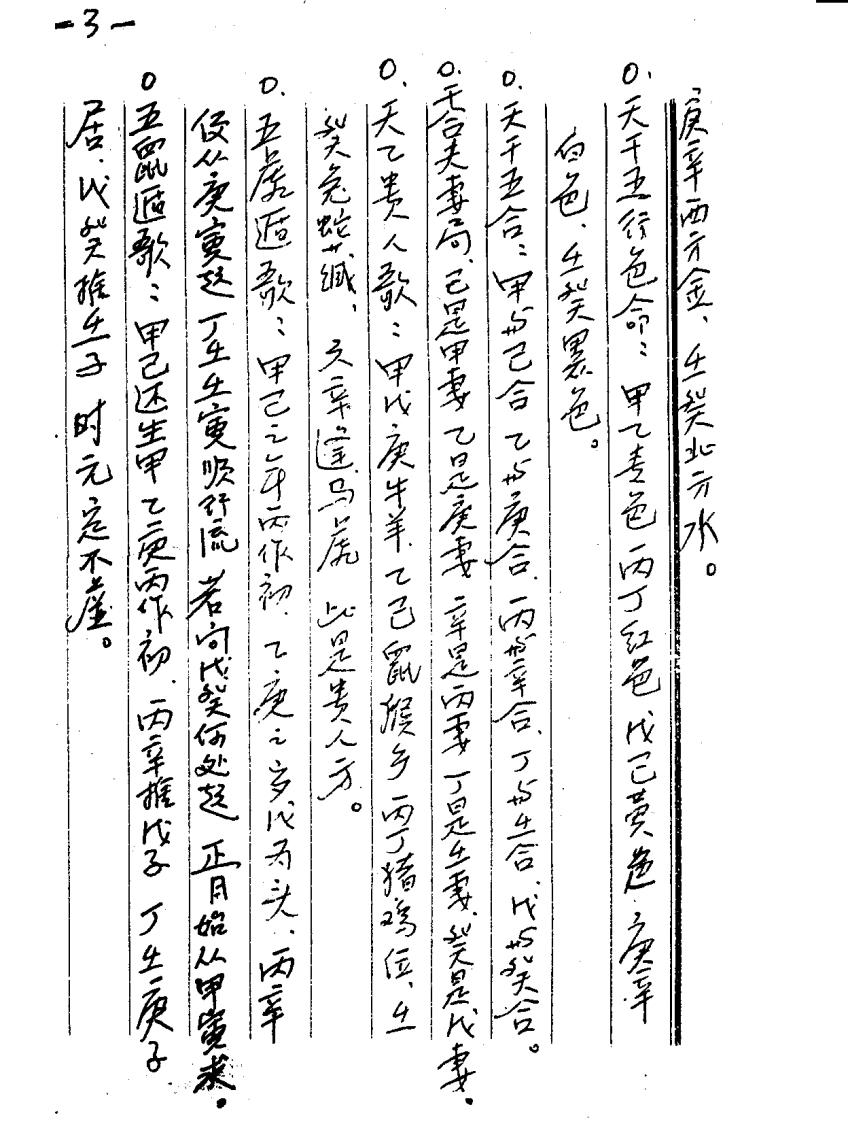 -3-
庚辛西方金、壬癸北方水。
○.天干五行色命：甲乙青色 丙丁红色 戊己黄色.庚辛
白色、壬癸黑色。
○.天干五合：甲与己合 乙与庚合、丙与辛合、丁与壬合、戊与癸合。
○.干合夫妻局、己是甲妻 乙是庚妻 辛是丙妻 丁是壬妻、癸是戊妻.
○.天乙贵人歌：甲戊庚牛羊、乙己鼠猴乡 丙丁猪鸡位、壬
癸兔蛇藏、六辛逢马虎 此是贵人方。
○.五虎遁歌：甲己之年丙作初、乙庚之岁戊为头、丙辛
便从庚寅起 丁壬壬寅顺行流 若问戊癸何处起 正月始从甲寅求.
○五鼠遁歌：甲己还生甲 乙庚丙作初.丙辛推戊子 丁壬庚子
居、戊癸推壬子 时元定不虚。